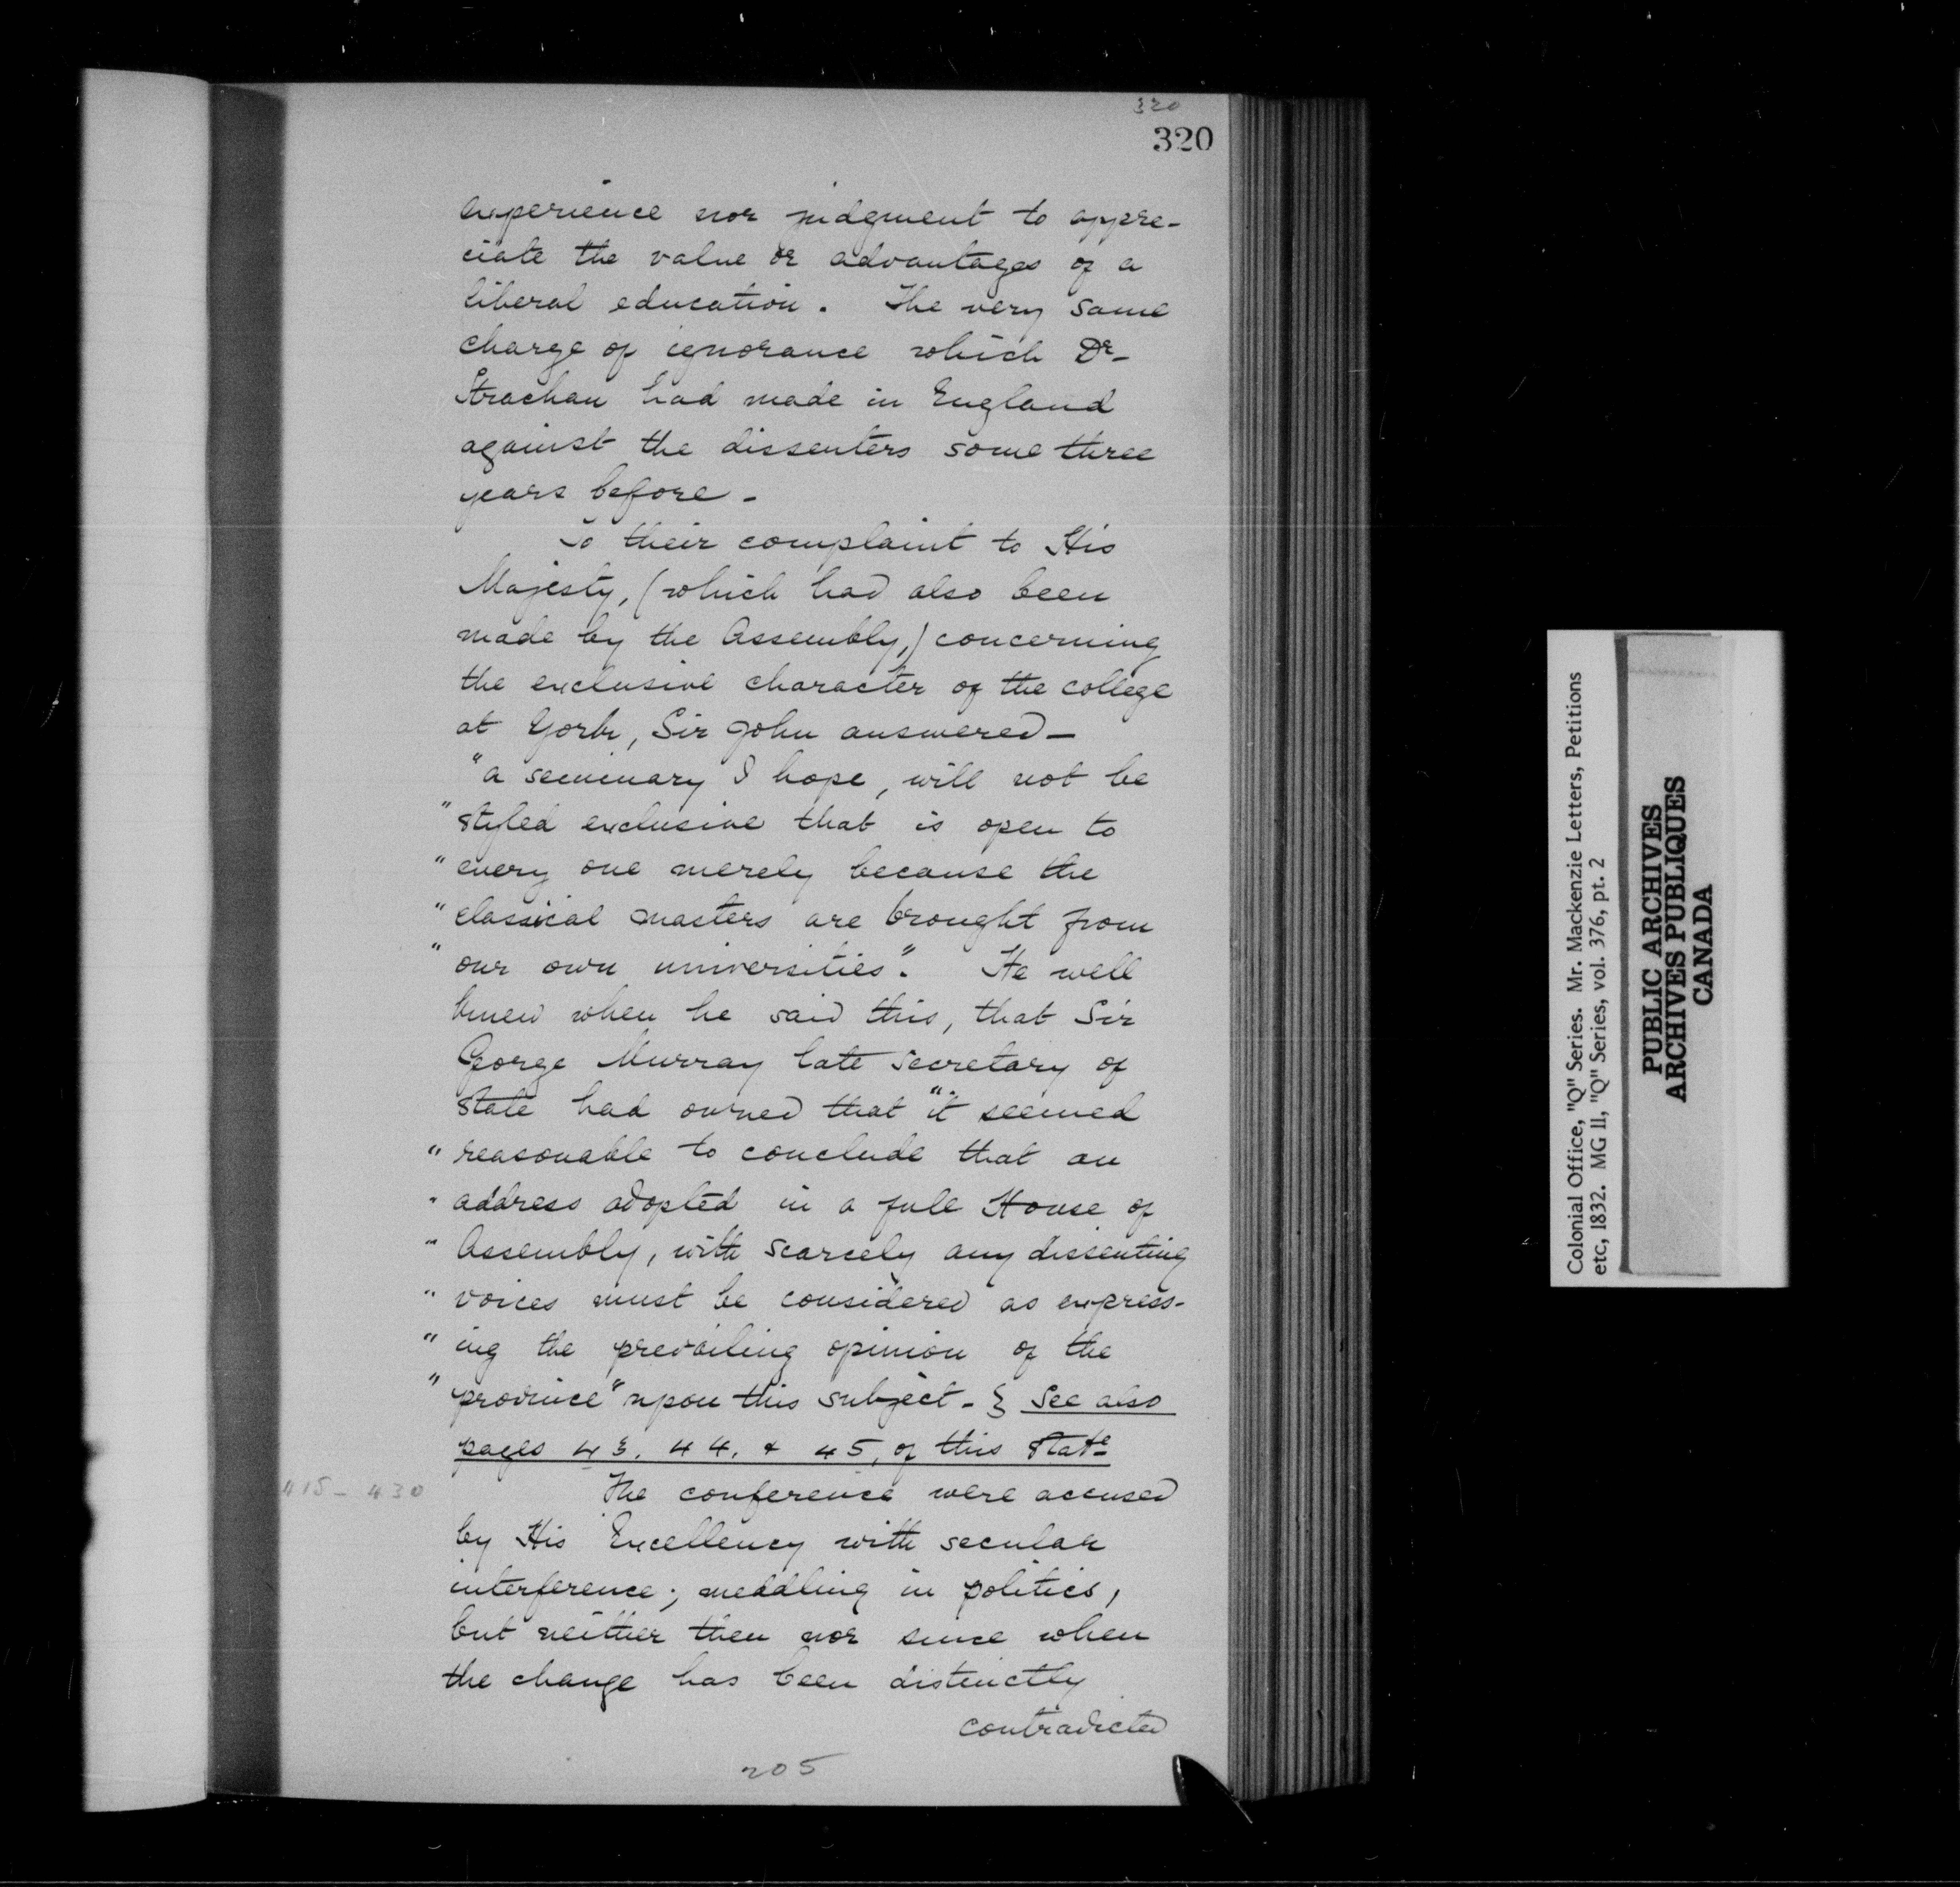 320
320
experience nor judgment to appre-
ciate the value or advantages of a
liberal education. The very same
charge of ignorance which Dr-
Strachan had made in England
against the dissenters some three
years before -
To their complaint to His
Majesty, (which had also been
made by the Assembly,) concerning
the exclusive character of the college
at York, Sir John answered -
"a seminary I hope, will not be
" styled exclusive that is open to
" every one merely because the
" classical masters are brought from
" our own universities". He well
knew when he said this, that Sir
George Murray late Secretary of
State had owned that "it seemed
" reasonable to conclude that an
" address adopted in a full House of
" Assembly, with scarcely any dissenting
" voices must be considered as express-
" ing the prevailing opinion of the
" province" upon this subject - { See also
pages 43, 44, & 45, of this State
415 - 430
The conference were accused
by His Excellency with secular
interference; meddling in politics,
but neither then nor since when
the change has been distinctly
contradicted
205
Colonial Office, "Q" Series. Mr. Mackenzie Letters, Petitions
etc, 1832. MG 11, "Q" Series, vol. 376, pt. 2
PUBLIC ARCHIVES
ARCHIVES PUBLIQUES
CANADA